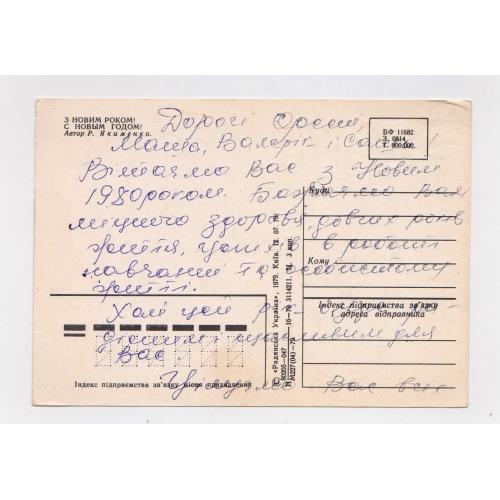 З НОВИМ РОКОМ!
С НОВЫМ ГОДОМ!
Автор Р. Якименко.
БФ 11682.
З. 0814.
Т. 900.000.
Дорогі
Маша, Валерік і Саша!
Вітаємо Вас з Новим
1980 роком. Бажаємо Вам
міцного здоровя довгих років
життя, успіхів в роботі
навчанні та особистому
житті.
Хай цей рік буде
щасливим для
Вас
Цілуємо Вас всіх
Куди
Кому
Індекс підприємства зв'язку
і адреса відправника
Індекс підприємства зв'язку місця призначення
© «Радянська Україна», 1979. Київ.